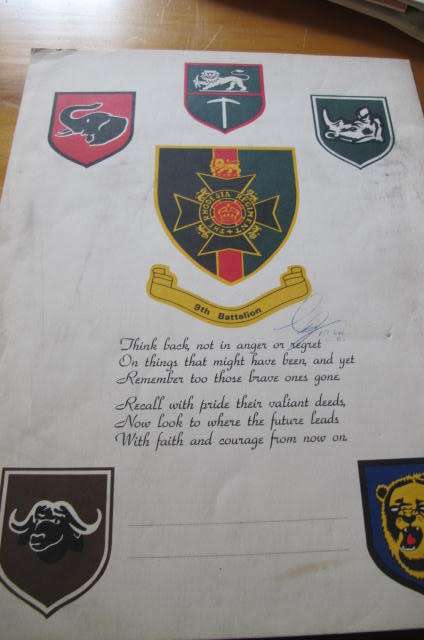 THE RHODESIA REGIMENT
9th Battalion
Think back, not in anger or regret
On things that might have been, and yet
Remember too those brave ones gone.
Recall with pride their valiant deeds,
Now look to where the future leads
With faith and courage from now on.